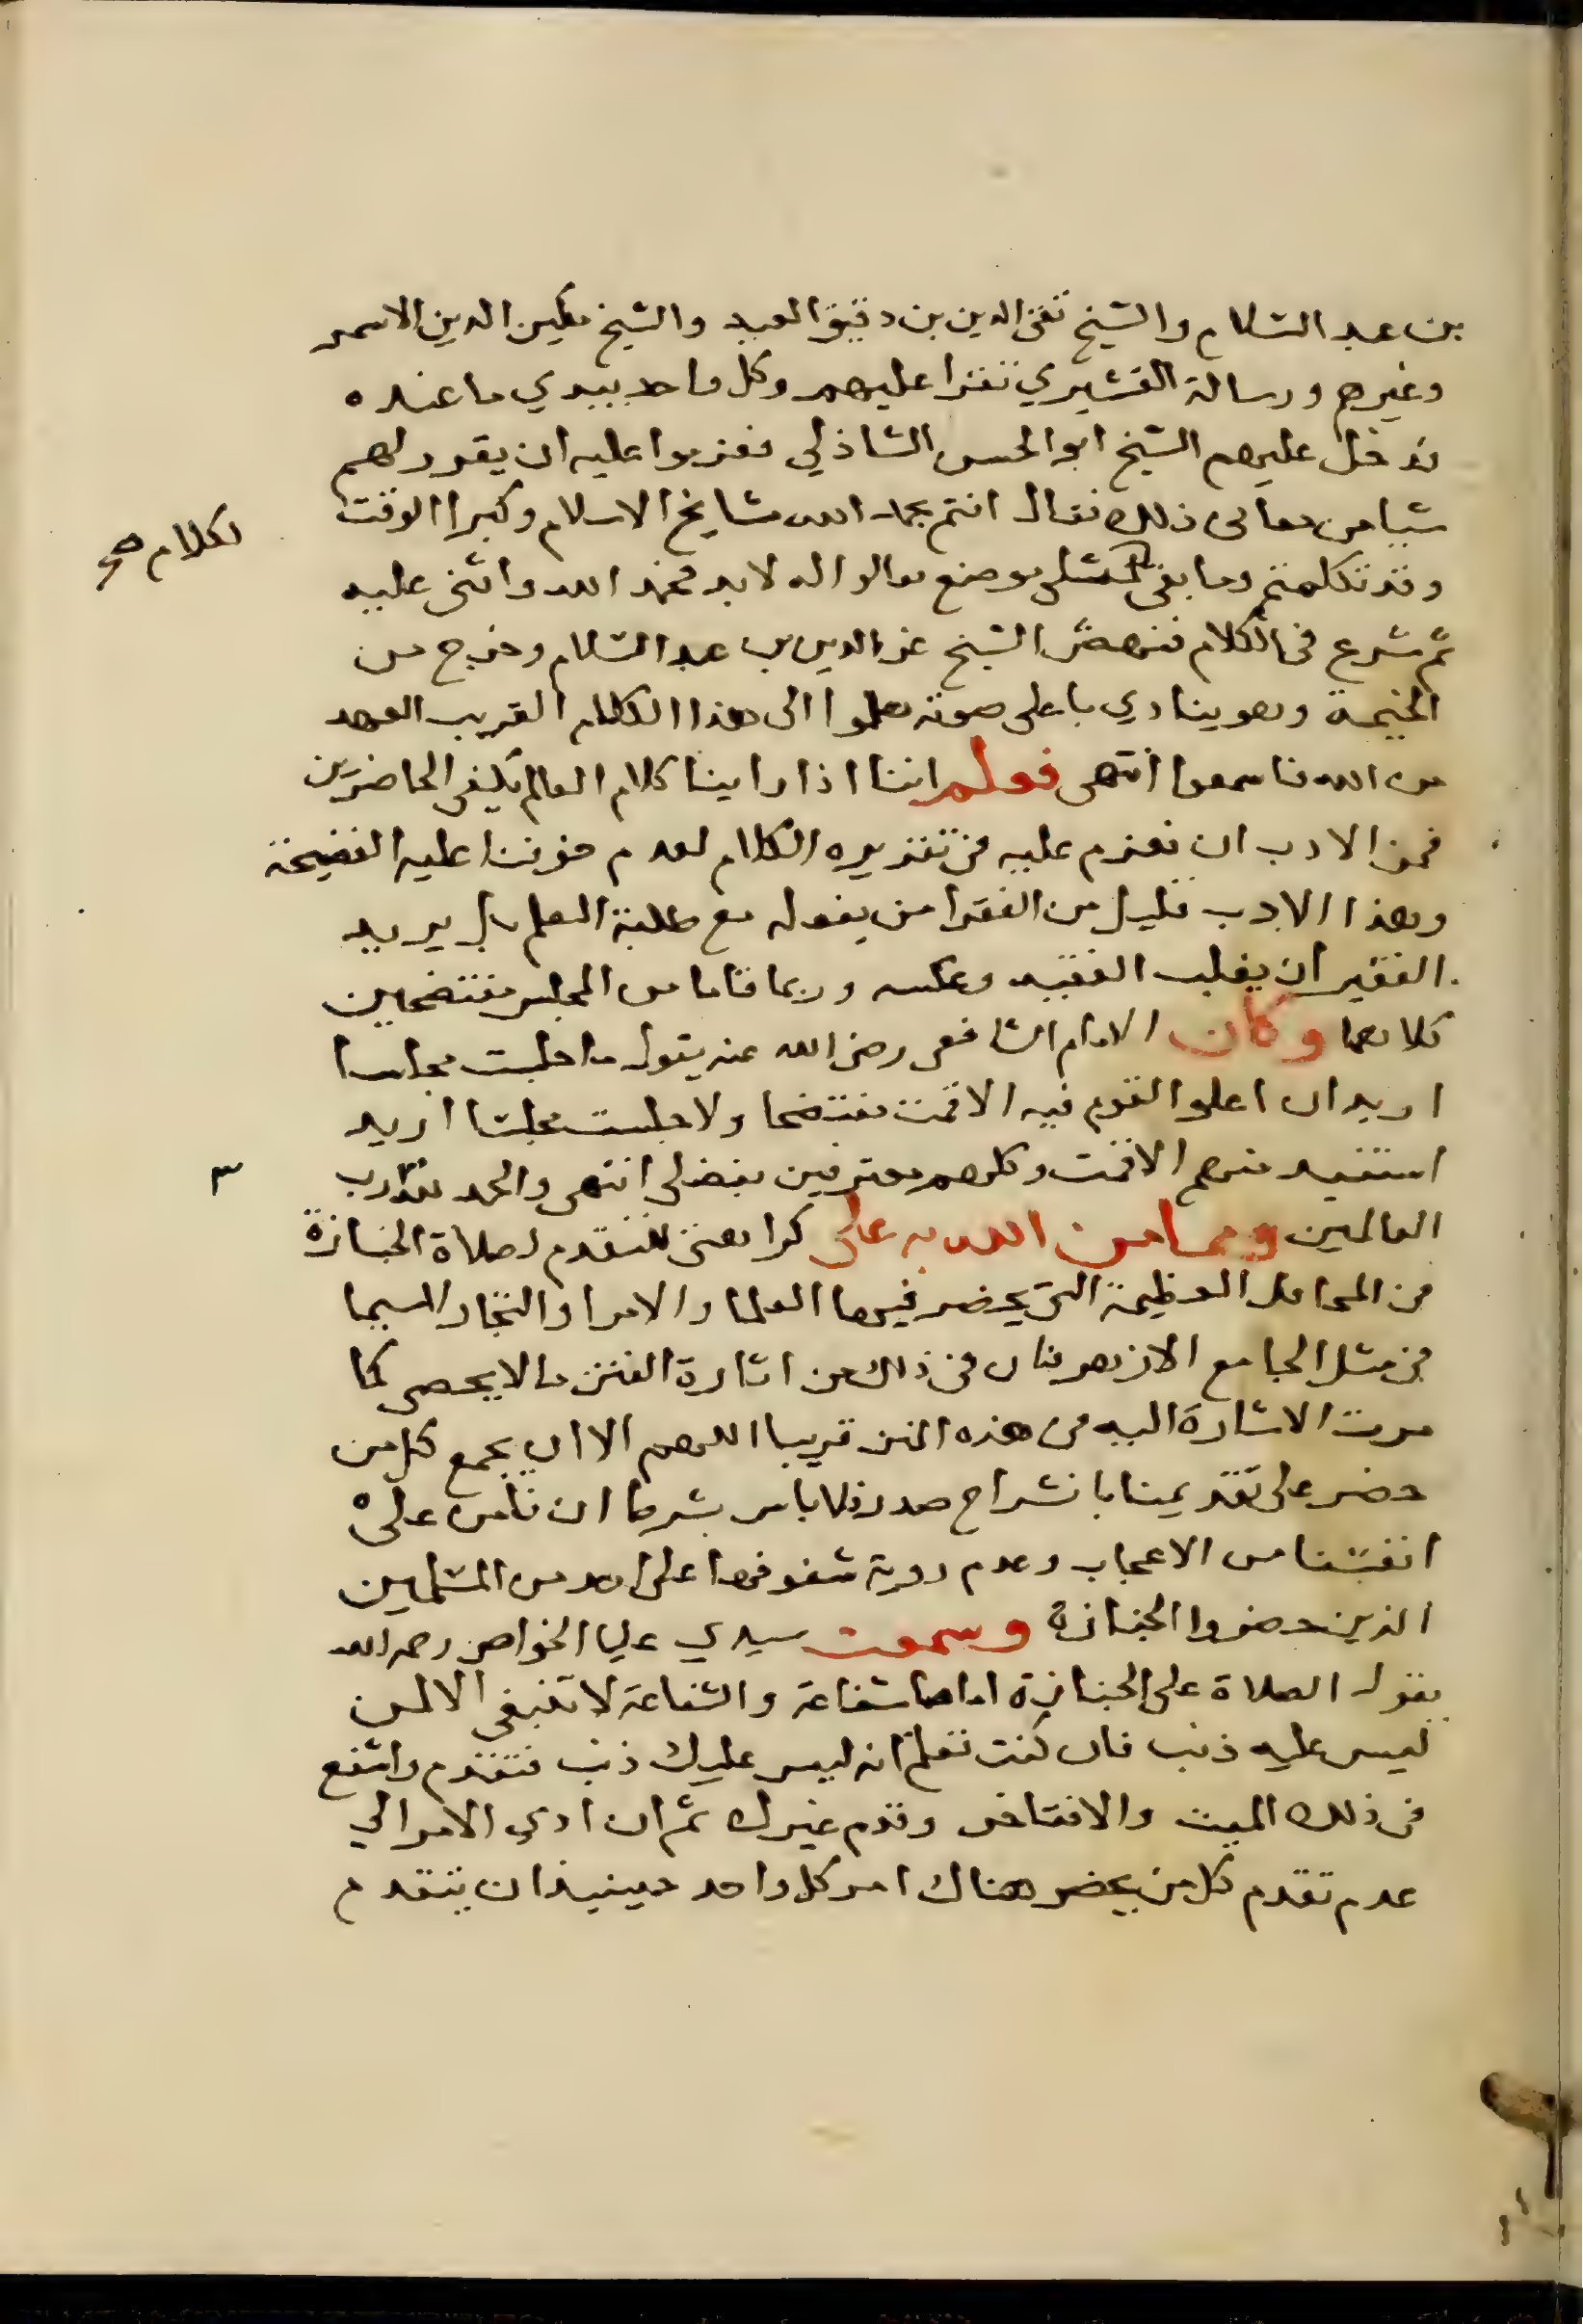 بن عبد السلام والشيخ تقى الدين بن دقيق العبد والشيخ مكين الدين الاسمر
وغيرهم ورسالة القشيري تقرا عليهم وكل واحد يبدي ما عنده
فدخل عليهم الشيخ ابو الحسن الشاذلي فعزموا عليه ان يقرر لهم
شيا من معانى ذلك فقال انتم بحمد الله مشايخ الاسلام وكبرا الوقت
وقد تكلمتم وما بقى لمثلى موضع فقالوا له لابد فحمد الله واثنى عليه
لكلام صح
ثم شرع فى الكلام فنهض الشيخ عز الدين بن عبد السلام وخرج من
الخيمة وهو ينادي باعلى صوته هلموا الى هذا الكلام القريب العهد
من الله فاسمعوا انتهى فعلم اننا اذا راينا كلام العالم يكفى الحاضرين
فمن الادب ان نعزم عليه فى تقريره الكلام لعدم خوفنا عليه الفضيحة
وهذا الادب قليل من الفقرا من يفعله مع طلبة العلم بل يريد
الفقير ان يغلب الفقيه وعكسه وربما قاما من المجلس مفتضحين
كلاهما وكان الامام الشافعى رضى الله عنه يقول ما جلست مجلسا
اريد ان اعلو القوم فيه الا قمت مفتضحا ولا جلست مجلسا اريد
استفيد منهم الا قمت وكلهم معترفين بفضلى انتهى والحمد لله رب
٣
العالمين ومما من الله به على كراهتى للتقدم لصلاة الجنازة
فى المحافل العظيمة التى يحضر فيها العلما والامرا والتجار لاسيما
فى مثل الجامع الازهر فان فى ذلك من اثارة الفتن ما لا يحصى كما
مرت الاشارة اليه فى هذه المنن قريبا اللهم الا ان يجمع كل من
حضر على تقديمنا بانشراح صدر فلا باس بشرط ان نامن على
انفسنا من الاعجاب وعدم روية شفوفها على احد من المسلمين
الذين حضروا الجنازة وسمعت سيدي عليا الخواص رحمه الله
يقول الصلاة على الجنازة اصلها شفاعة والشفاعة لا تنبغى الا لمن
ليس عليه ذنب فان كنت تعلم انه ليس عليك ذنب فتقدم واشفع
فى ذلك الميت والا فتاخر وقدم غيرك ثم ان ادى الامر الي
عدم تقدم كل من يحضر هناك امر كل واحد حينيذ ان يتقدم